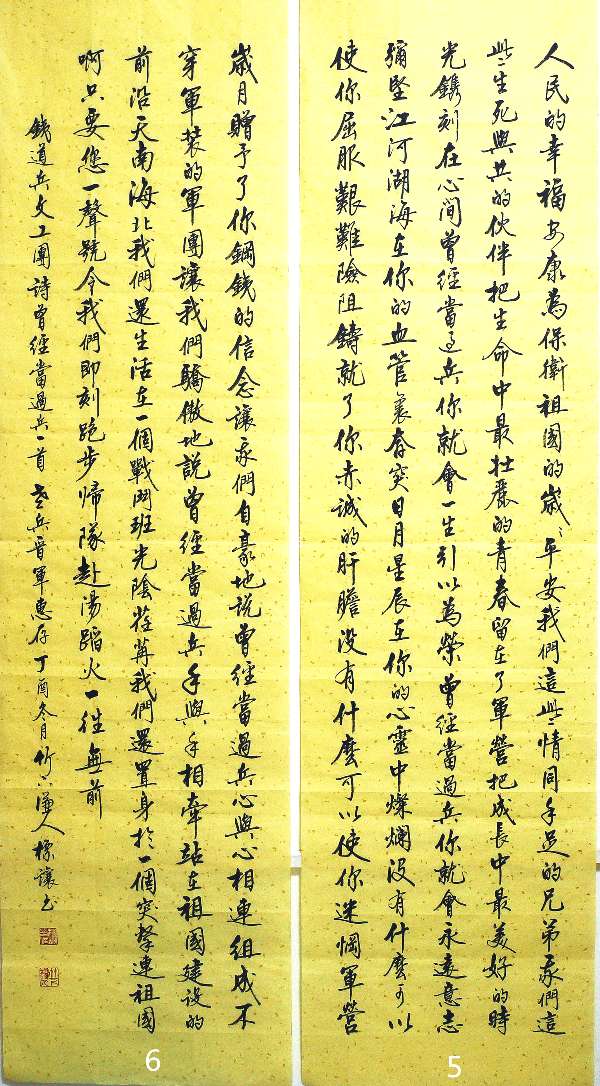 人民的幸福安康為保衛祖國的歲歲平安我們這些情同手足的兄弟我們這
些生死與共的伙伴把生命中最壯麗的青春留在了軍營把成長中最美好的時
光鐫刻在心間曾經當過兵你就會一生引以為榮曾經當過兵你就會永遠意志
彌堅江河湖海在你的血管裏奔突日月星辰在你的心靈中燦爛沒有什麼可以
使你屈服艱難險阻鑄就了你赤誠的肝膽沒有什麼可以使你迷惘軍營
5
歲月贈予了你鋼鐵的信念讓我們自豪地說曾經當過兵心與心相連組成不
穿軍裝的軍團讓我們驕傲地說曾經當過兵手與手相牽站在祖國建設的
前沿天南海北我們還生活在一個戰鬥班光陰荏苒我們還置身於一個突擊連祖國
啊只要您一聲號令我們即刻跑步歸隊赴湯蹈火一往無前
鐵道兵文工團詩曾經當過兵一首 老兵晉軍惠存 丁酉冬月竹下漁人標讓書
6